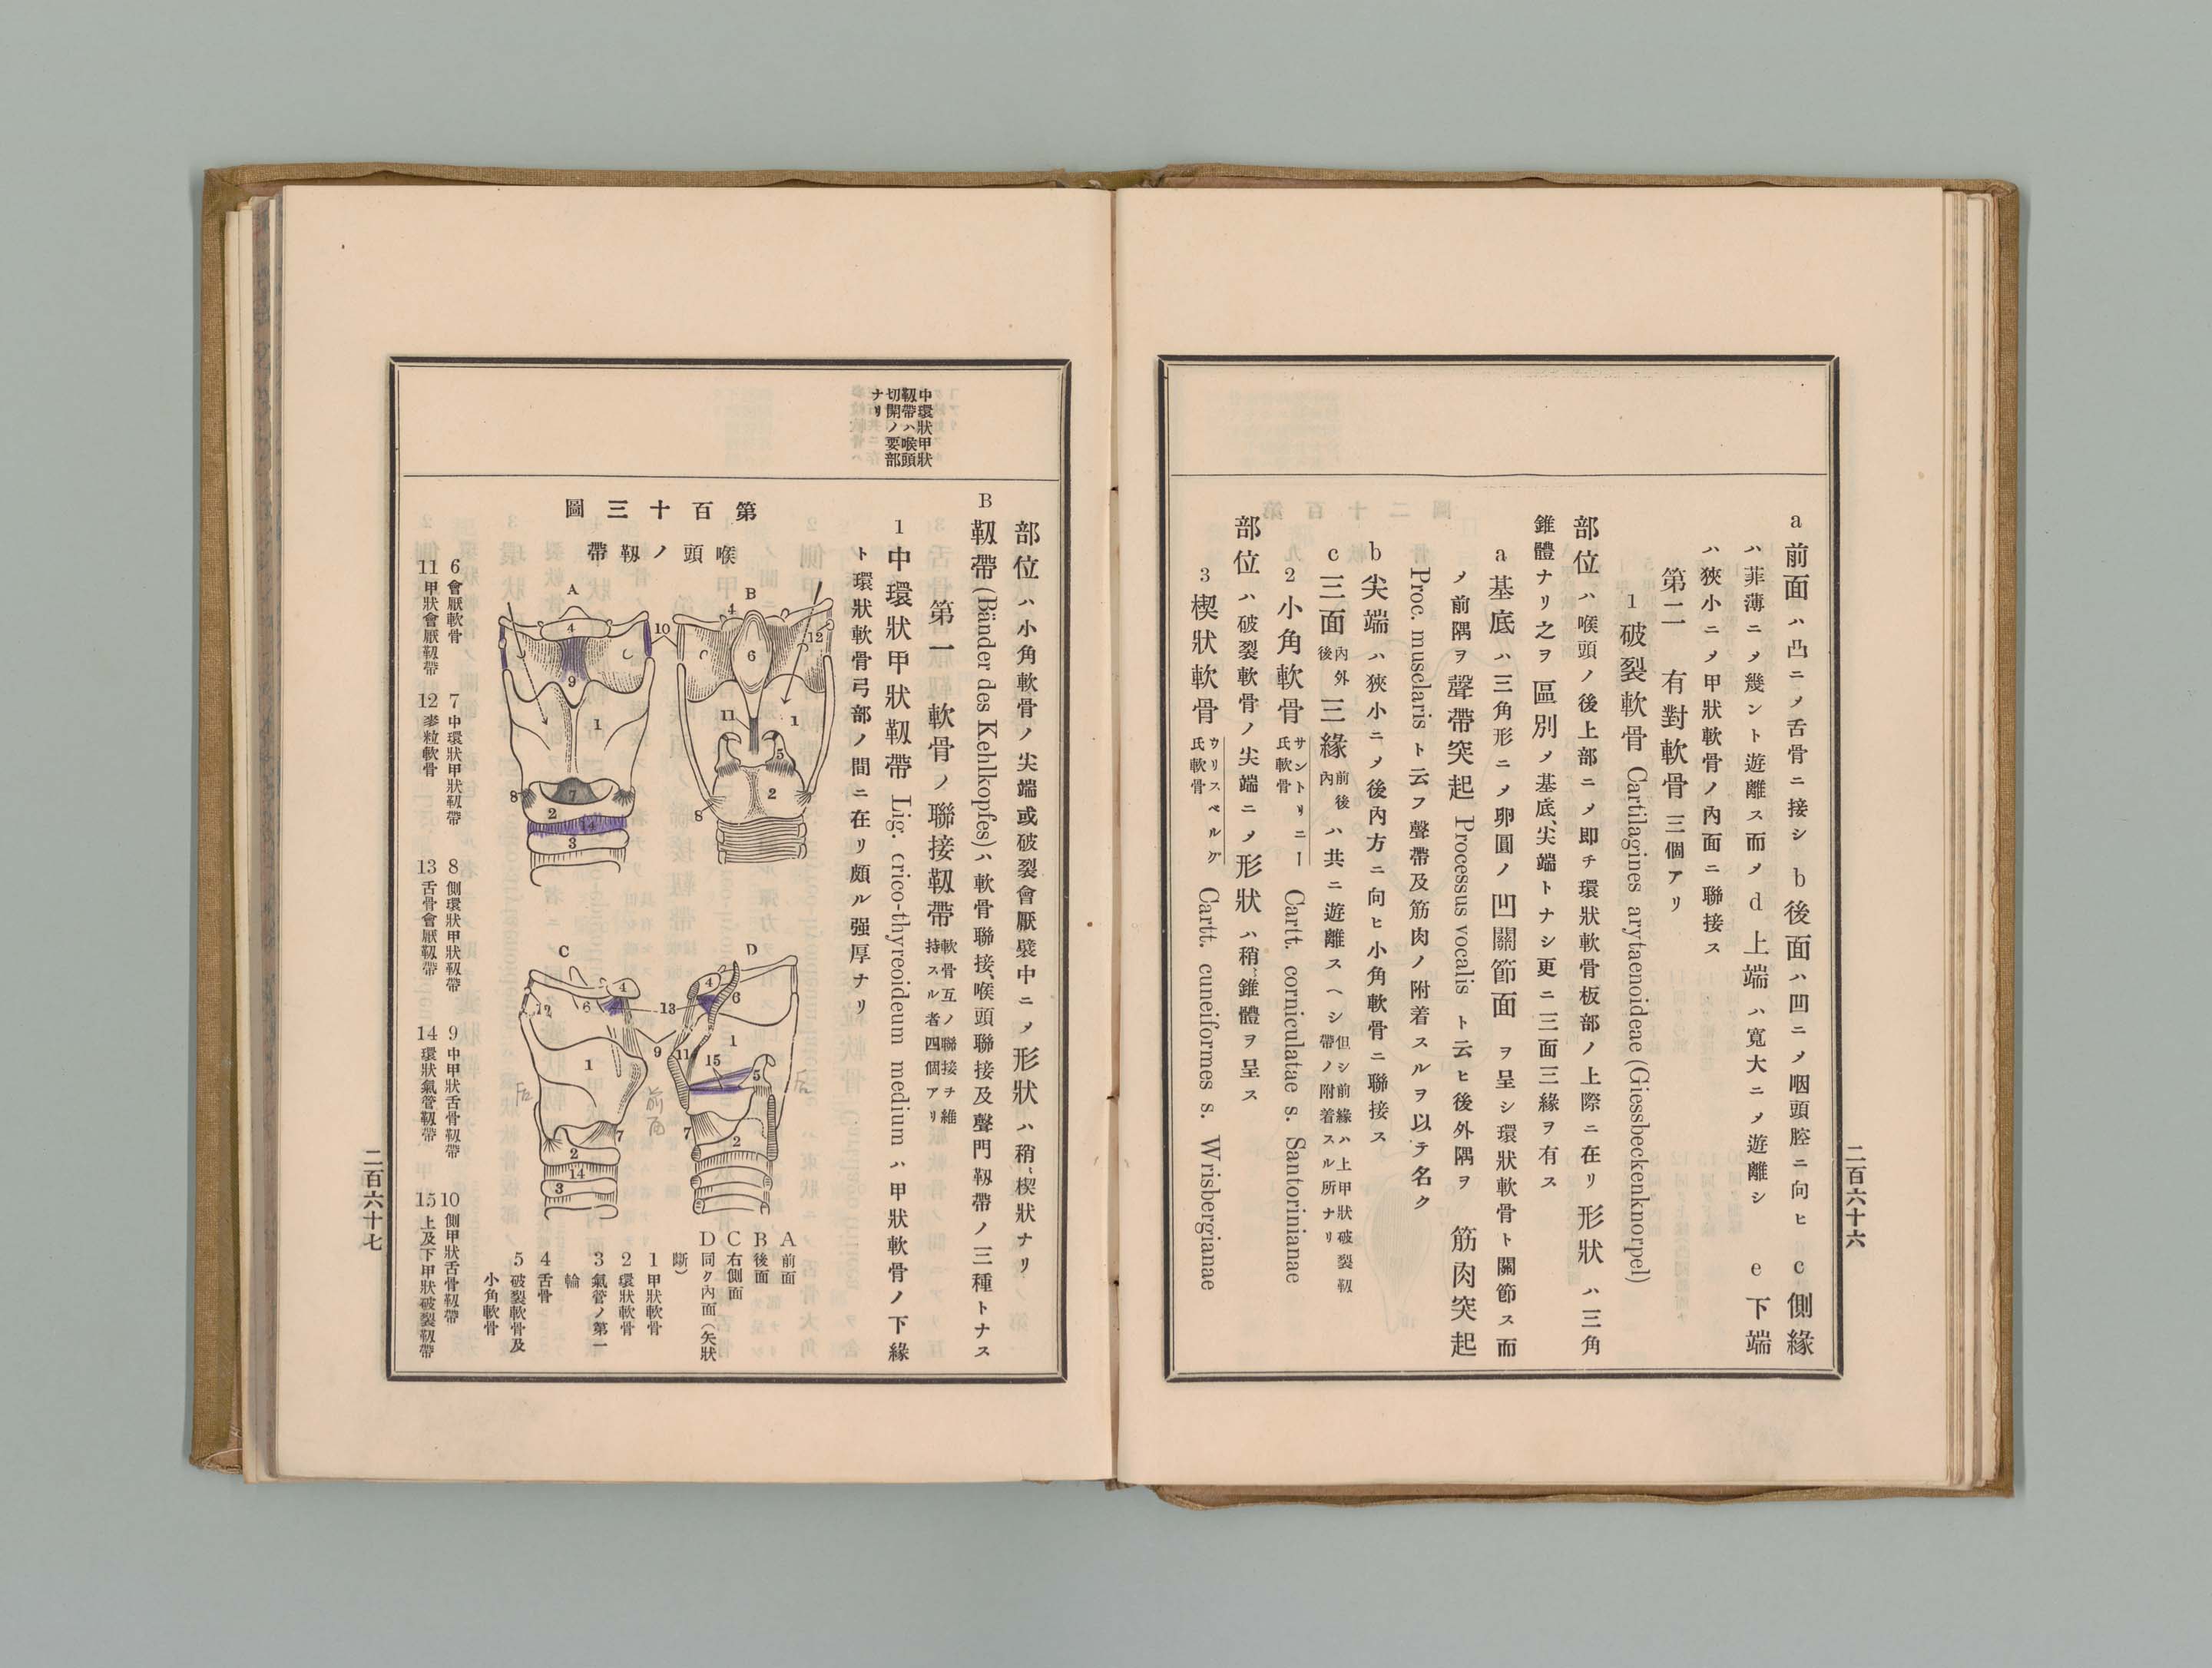 a 前面ハ凸ニノ舌骨ニ接シ b 後面ハ凹ニノ咽頭腔ニ向ヒ c 側緣
ハ菲薄ニノ幾ント遊離ス而ノ d 上端ハ寬大ニノ遊離シ e 下端
ハ狹小ニノ甲狀軟骨ノ內面ニ聯接ス
第二 有對軟骨 三個アリ
1 破裂軟骨 Cartilagines arytaenoideae (Giessbeckenknorpel)
部位ハ喉頭ノ後上部ニノ卽チ環狀軟骨板部ノ上際ニ在リ形狀ハ三角
錐體ナリ之ヲ區別ノ基底、尖端トナシ更ニ三面三緣ヲ有ス
a 基底ハ三角形ニノ卵圓ノ凹關節面ヲ呈シ環狀軟骨ト關節ス而
ノ前隅ヲ聲帶突起 Processus vocalis ト云ヒ後外隅ヲ筋肉突起
Proc. musclaris ト云フ聲帶及筋肉ノ附着スルヲ以テ名ク
b 尖端ハ狹小ニノ後內方ニ向ヒ小角軟骨ニ聯接ス
c 三面 內外後 三緣 前後內 ハ共ニ遊離スヘシ 但シ前緣ハ上甲狀破裂靱帶ノ附着スル所ナリ
2 小角軟骨 サントリニー氏軟骨 Cartt. corniculatae s. Santorinianae
部位ハ破裂軟骨ノ尖端ニノ形狀ハ稍、錐體ヲ呈ス
3 楔狀軟骨 ウリスベルグ氏軟骨 Cartt. cuneiformes s. Wrisbergianae
二百六十六
中環狀甲狀
靱帶ハ喉頭
切開ノ要部
ナリ
部位ハ小角軟骨ノ尖端或破裂會厭襞中ニノ形狀ハ稍、楔狀ナリ
B 靱帶 (Bänder des Kehlkopfes) ハ軟骨聯接、喉頭聯接及聲門靱帶ノ三種トナス
第一 軟骨ノ聯接靱帶 軟骨互ノ聯接チ維持スル者四個アリ
1 中環狀甲狀靱帶 Lig. crico-thyreoideum medium ハ甲狀軟骨ノ下緣
ト環狀軟骨弓部ノ間ニ在リ頗ル强厚ナリ
第百十三圖
喉頭ノ靱帶
A
B
C
D
4
10
9
1
8
7
2
14
3
4
12
6
11
1
5
2
8
12
6
4
13
1
9
7
2
14
3
4
6
1
11
15
5
7
2
前面
A 前面
B 後面
C 右側面
D 同ク內面(矢狀
斷)
1 甲狀軟骨
2 環狀軟骨
3 氣管ノ第一
輪
4 舌骨
5 破裂軟骨及
小角軟骨
6 會厭軟骨
7 中環狀甲狀靱帶
8 側環狀甲狀靱帶
9 中甲狀舌骨靱帶
10 側甲狀舌骨靱帶
11 甲狀會厭靱帶
12 麥粒軟骨
13 舌骨會厭靱帶
14 環狀氣管靱帶
15 上及下甲狀破裂靱帶
二百六十七